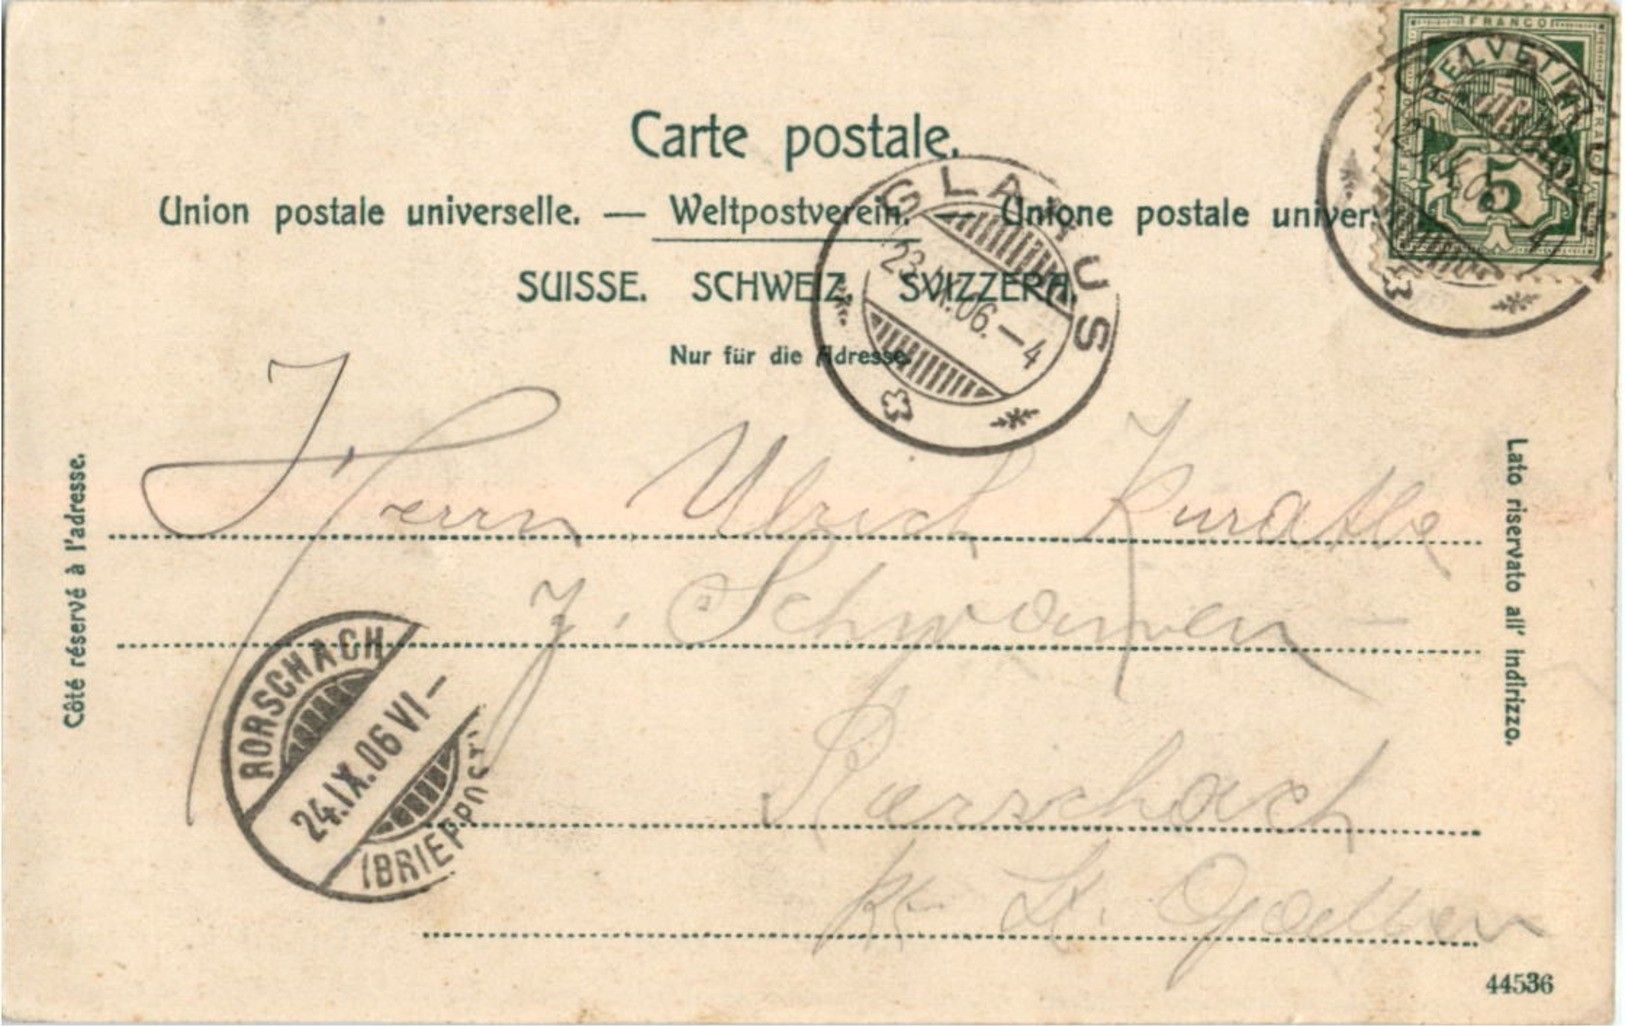 FRANCO
HELVETIA
5
Carte postale.
Union postale universelle. — Weltpostverein. — Unione postale univer
SUISSE. SCHWEIZ. SVIZZERA.
Nur für die Adresse.
GLARUS
23.IX.06.—4
Côté réservé à l'adresse.
Lato riservato all' indirizzo.
Herrn Ulrich Kurath
z. Schwanen
Rorschach
Kt. St. Gallen
RORSCHACH
24.IX.06 VI—
(BRIEFPOST)
44536